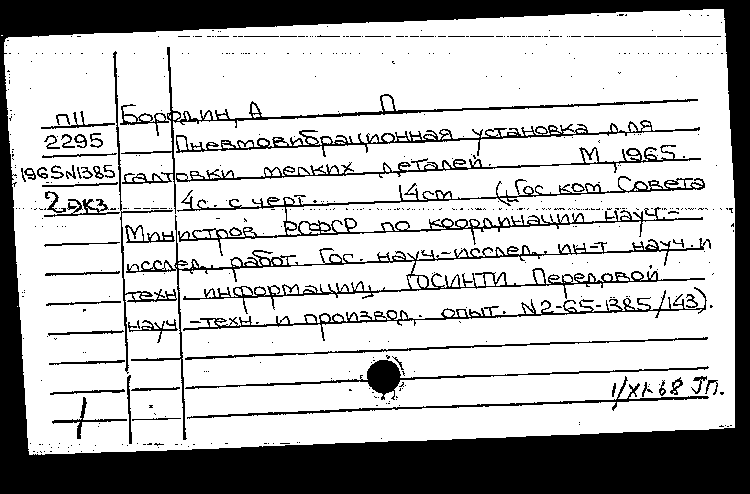 П11 Бородин, А П
2295 Пневмовибрационная установка для
1965N1385 галтовки мелких деталей. М, 1965.
2 экз. 4с. с черт. 14см. („Гос. ком Совета
Министров РСФСР по координации науч.-
исслед. работ. Гос. науч.-исслед. ин-т науч. и
техн. информации„. ГОСИНТИ. Передовой
науч-техн. и производ. опыт. N2-65-1385/143).
1/XI-68 ТП.